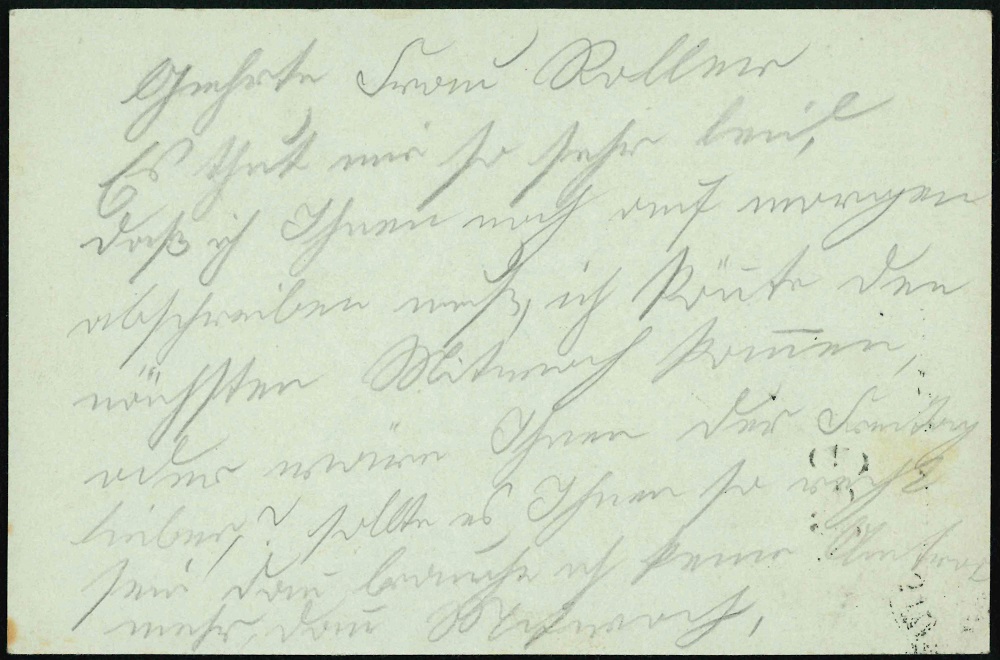 Geehrte Frau Rollner
Es thut mir so sehr leid,
daß ich Ihnen noch auf morgen
abschreiben muß, ich kön̄te den
nächsten Mitwoch kom̄en,
oder wäre Ihnen der Freitag
lieber,? sollte es Ihnen so recht
sein dan̄ brauche ich keine
mehr, dan̄ Mitwoch,